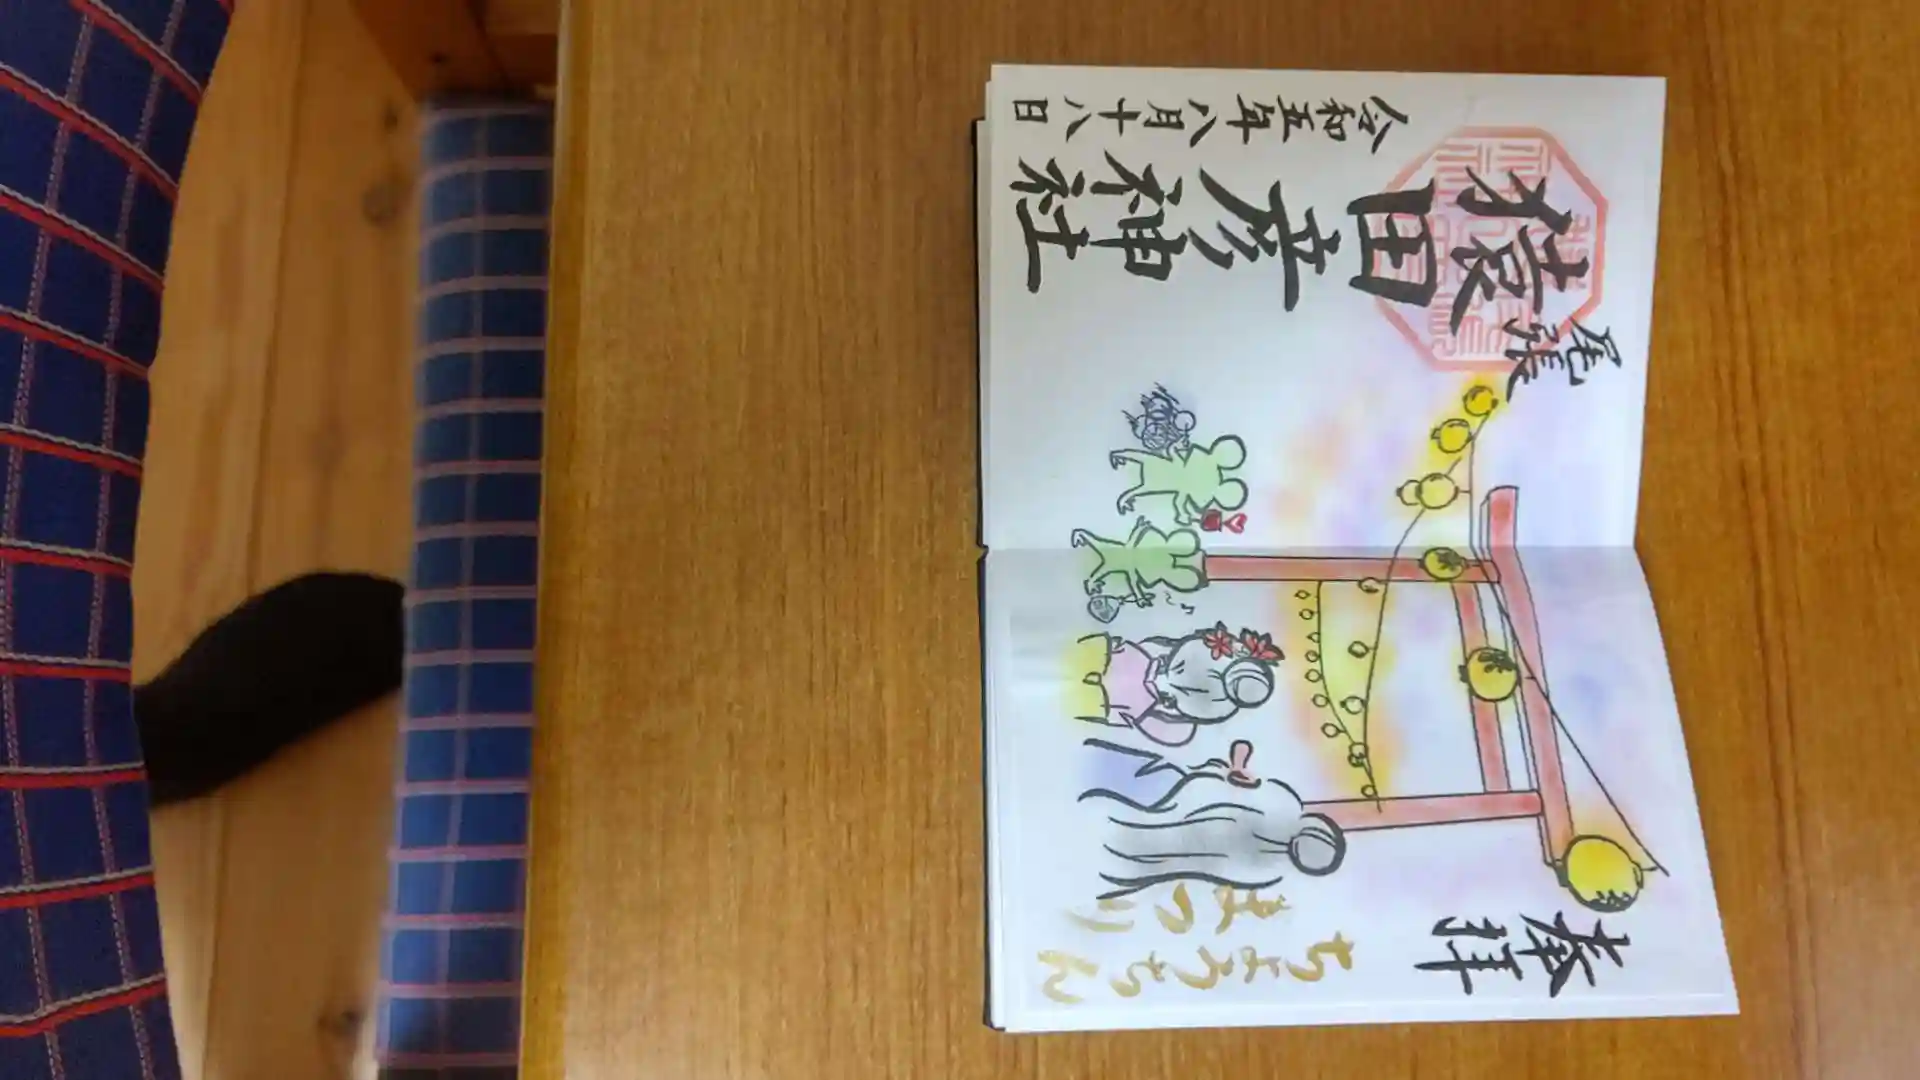 奉拝
ちょうちん
まつり
尾張
猿田彦神社
令和五年八月十八日